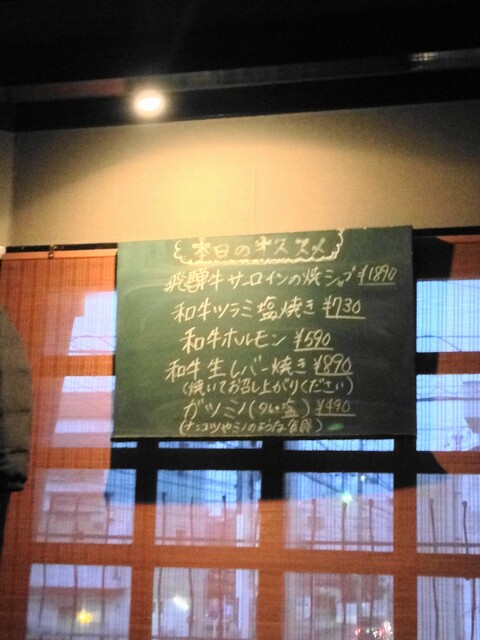 本日のオススメ
飛騨牛サーロインの焼シャブ ¥1890
和牛ツラミ塩焼き ¥730
和牛ホルモン ¥590
和牛生レバー焼き ¥890
(焼いてお召し上がりください)
ガツミノ(タレ・塩) ¥490
(ナンコツやミノのような食感)